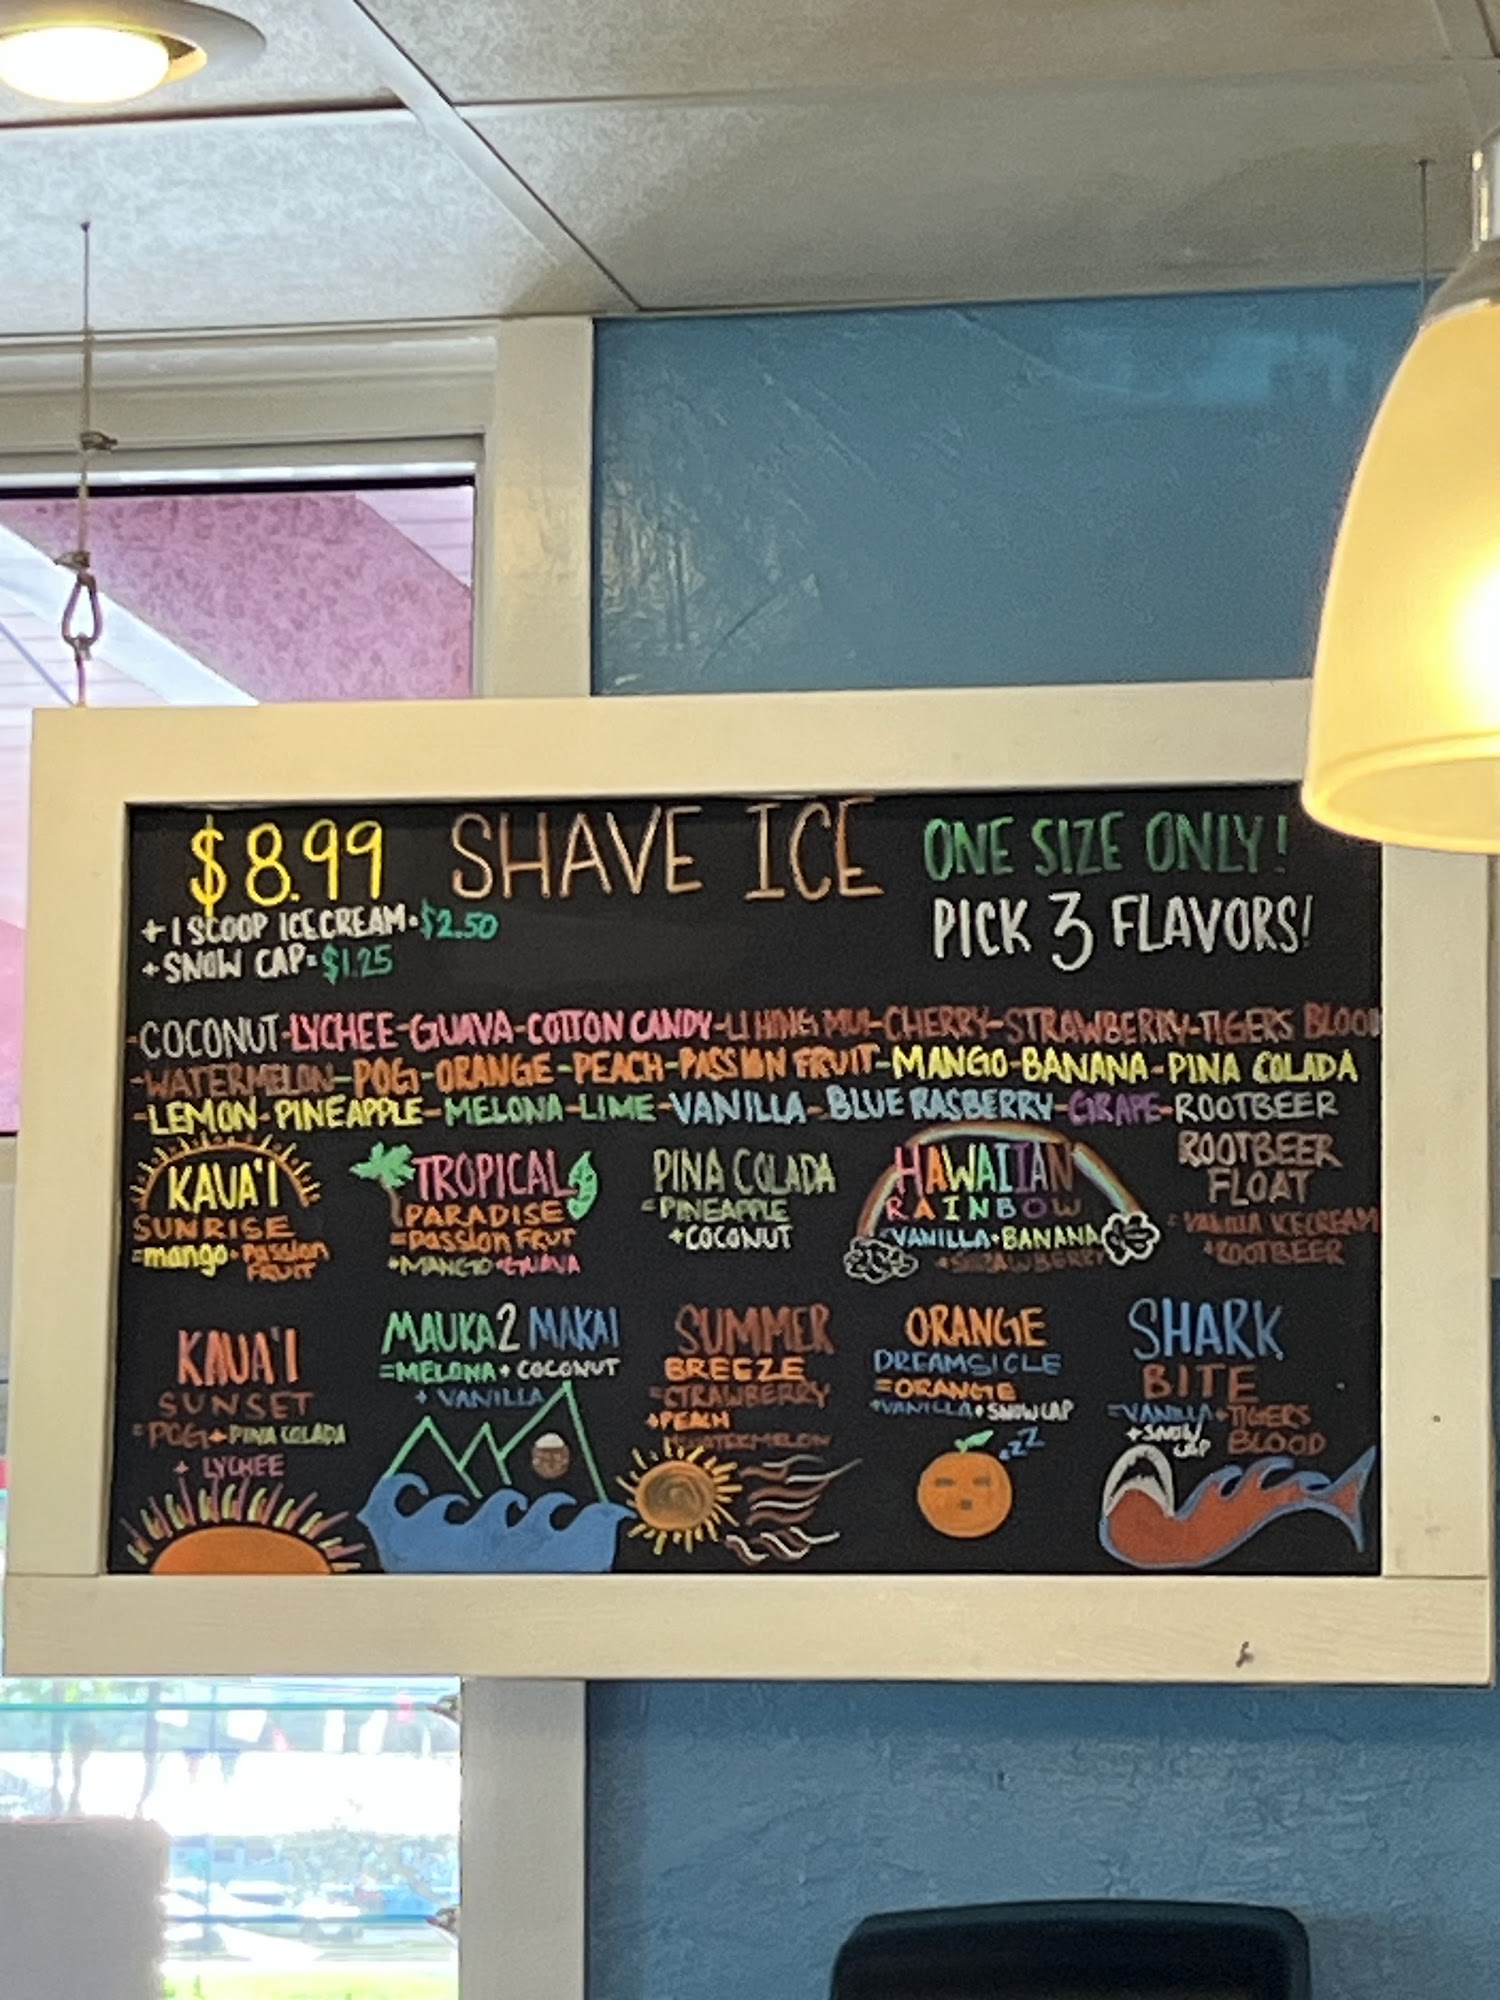 $8.99 SHAVE ICE ONE SIZE ONLY!
+ 1 SCOOP ICE CREAM = $2.50
+ SNOW CAP = $1.25
PICK 3 FLAVORS!
-COCONUT-LYCHEE-GUAVA-COTTON CANDY-LI HING MUI-CHERRY-STRAWBERRY-TIGERS BLOOD
-WATERMELON-POG-ORANGE-PEACH-PASSION FRUIT-MANGO-BANANA-PINA COLADA
-LEMON-PINEAPPLE-MELONA-LIME-VANILLA-BLUE RASBERRY-GRAPE-ROOTBEER
KAUA'I
SUNRISE
=mango+Passion
FRUIT
TROPICAL
PARADISE
=Passion FRUT
+MANGO+GUAVA
PINA COLADA
=PINEAPPLE
+COCONUT
HAWAIIAN
RAINBOW
=VANILLA+BANANA
+STRAWBERRY
ROOTBEER
FLOAT
=VANILLA ICECREAM
+ROOTBEER
KAUA'I
SUNSET
=POG+PINA COLADA
+ LYCHEE
MAUKA 2 MAKAI
=MELONA+COCONUT
+ VANILLA
SUMMER
BREEZE
=STRAWBERRY
+PEACH
+WATERMELON
ORANGE
DREAMSICLE
=ORANGE
+VANILLA+SNOWCAP
zZZ
SHARK
BITE
=VANILLA+TIGERS
BLOOD
+SNOW
CAP